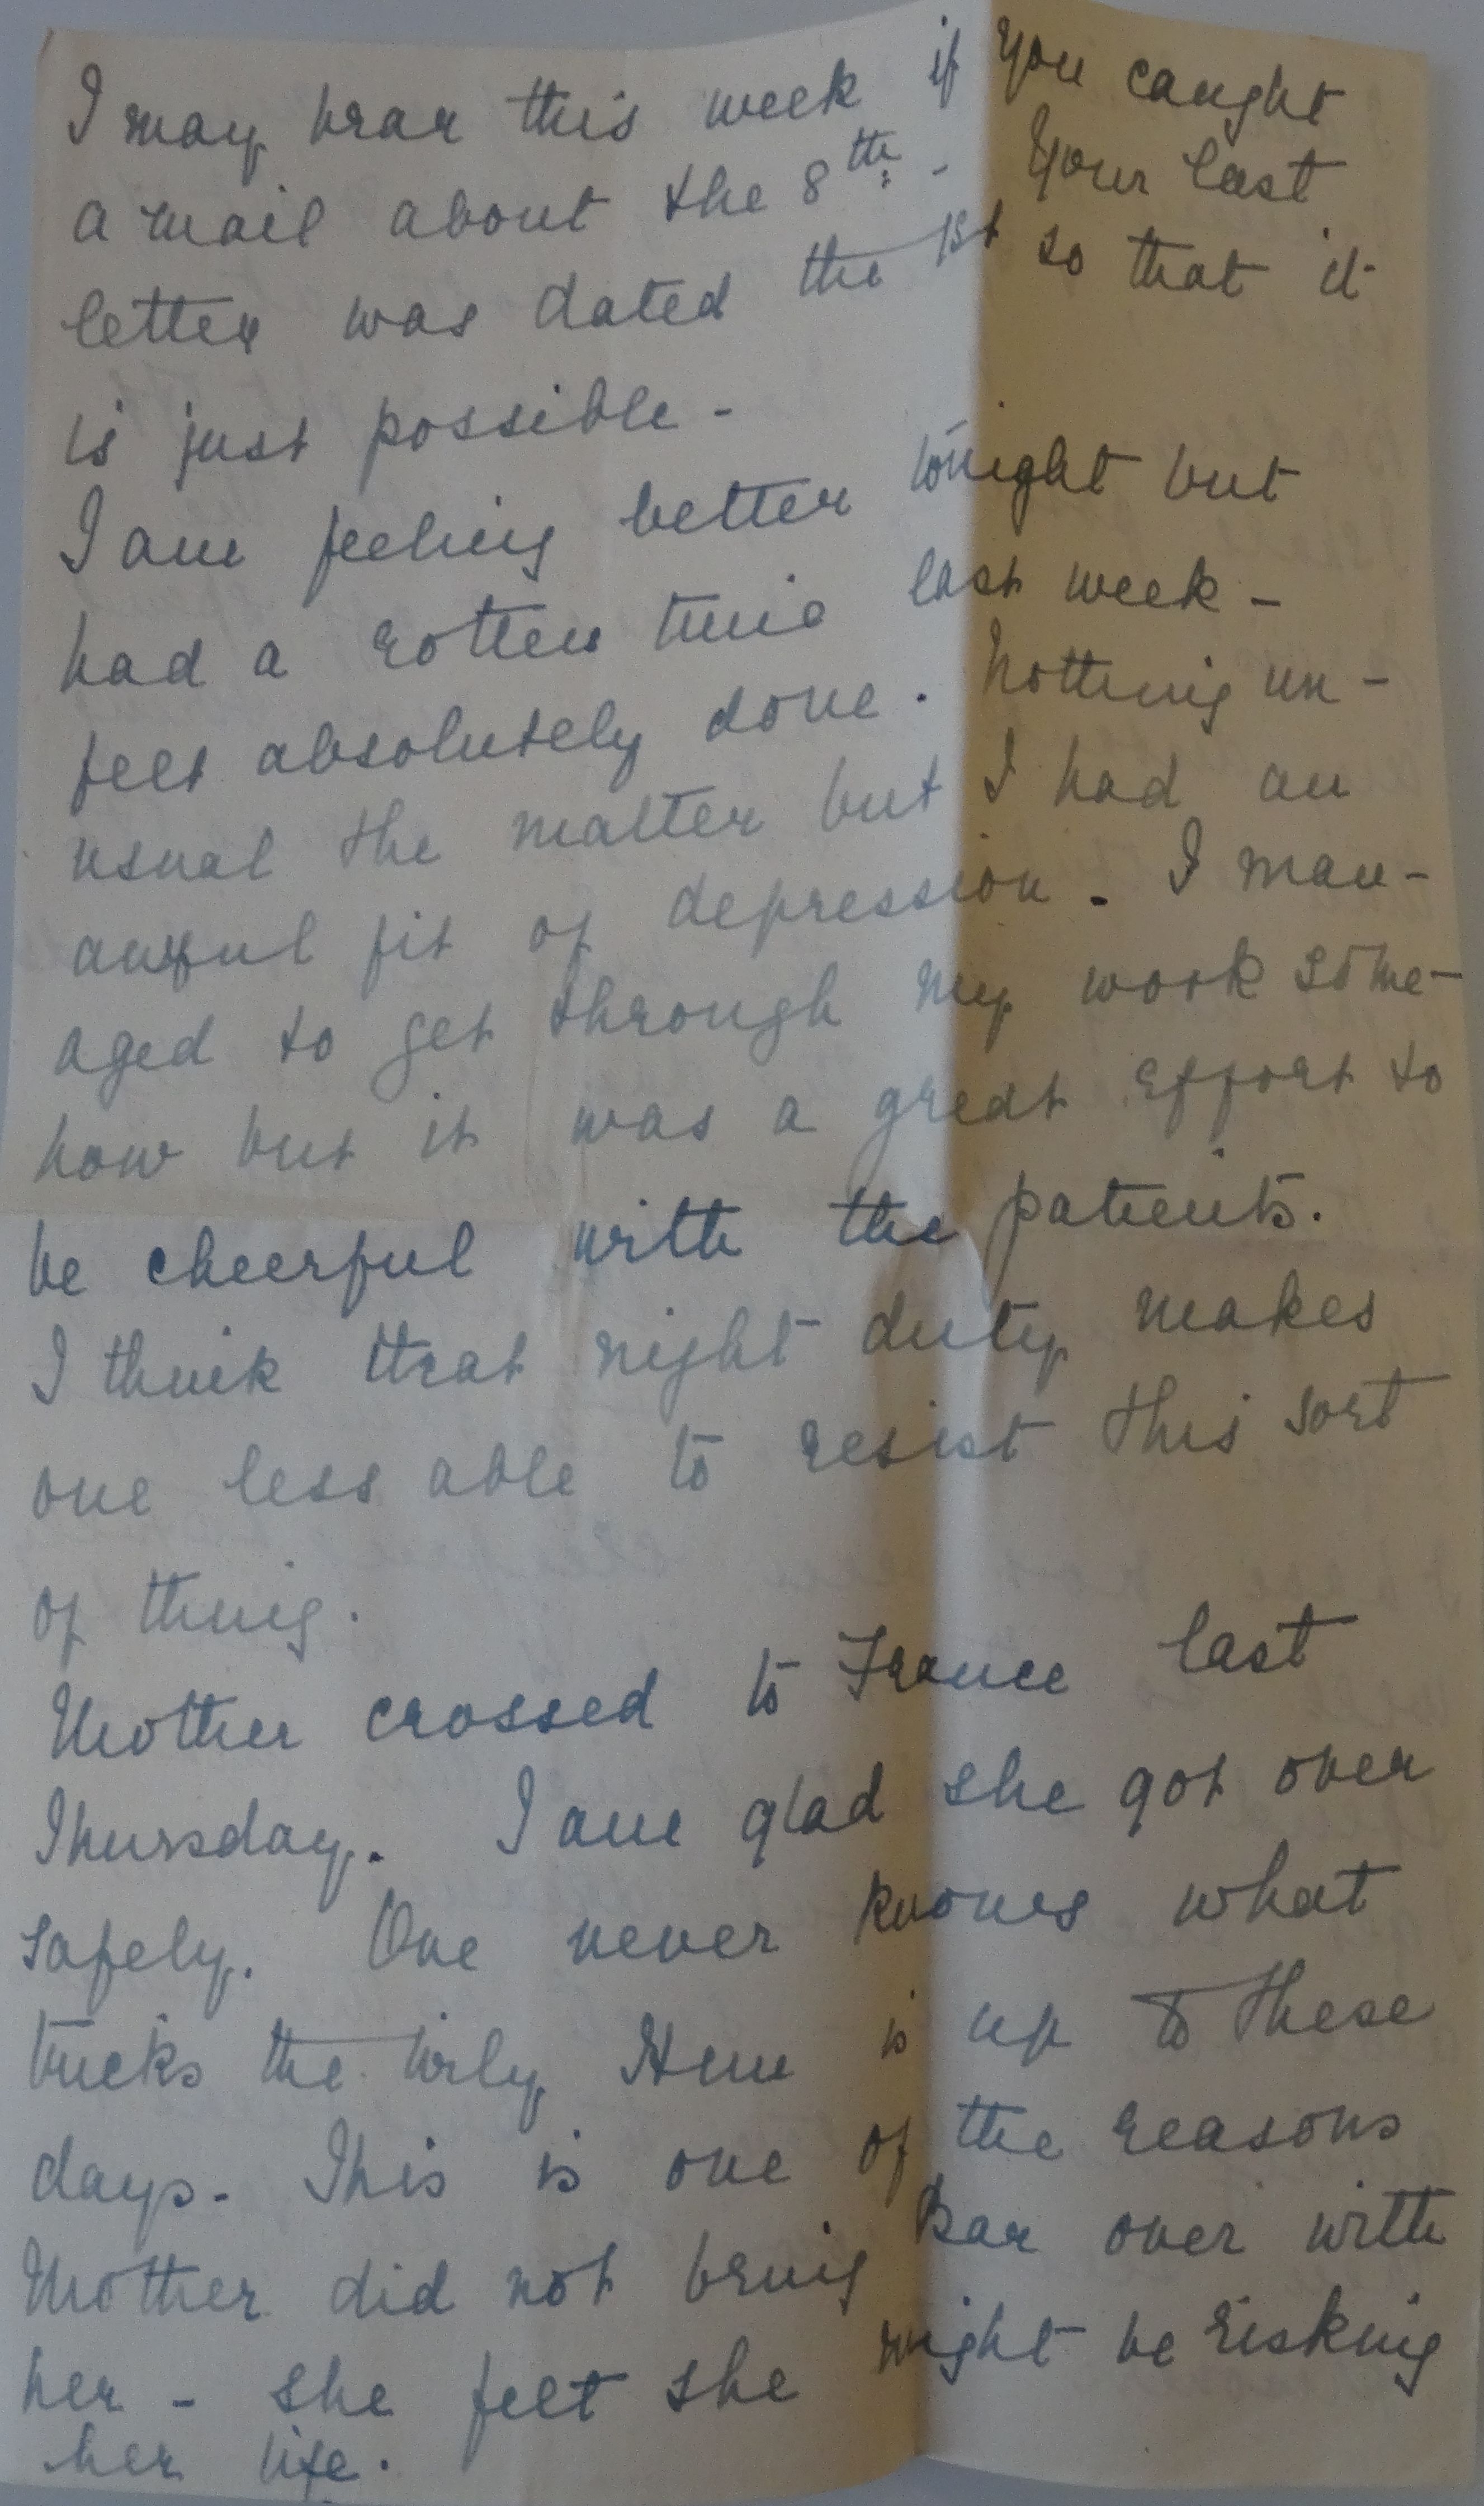 I may hear this week if you caught
a mail about the 8th - Your last
letter was dated the 1st so that it
is just possible -
I am feeling better tonight but
had a rotten time last week -
felt absolutely done. Nothing un-
usual the matter but I had an
awful fit of depression. I man-
aged to get through my work some-
how but it was a great effort to
be cheerful with the patients.
I think that night duty makes
one less able to resist this sort
of thing.
Mother crossed to France last
Thursday. I am glad she got over
safely. One never knows what
tricks the wily Hun is up to these
days. This is one of the reasons
Mother did not bring Bar over with
her - she felt she might be risking
her life.